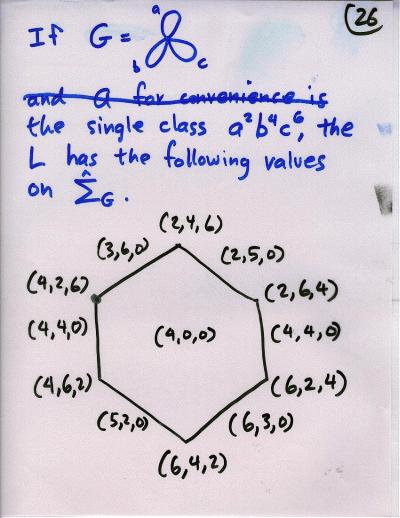 (26
If G = a b c
and a for convenience is
the single class a²b⁴c⁶, the
L has the following values
on Σ̂_G.
(2,4,6)
(3,6,0) (2,5,0)
(4,2,6) (2,6,4)
(4,4,0) (4,0,0) (4,4,0)
(4,6,2) (6,2,4)
(5,2,0) (6,3,0)
(6,4,2)